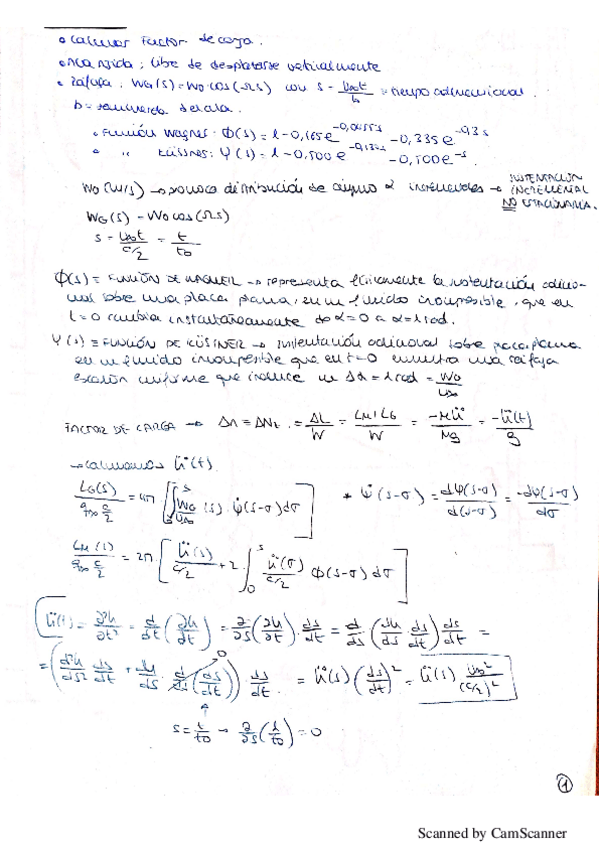 • Calcular Factor de carga.
• Placa rígida: libre de desplazarse verticalmente
• Ráfaga: WG(s) = W0·cos(Ωs) con s = U∞t/b = tiempo adimensional.
b = semicuerda
• Función Wagner: Φ(s) = 1 - 0,165e^-0,0455s - 0,335e^-0,3s
• " Küssner: Ψ(s) = 1 - 0,500e^-0,130s - 0,500e^-s.
W0 (m/s) → distribución de ángulo α incrementales → SUSTENTACIÓN INCREMENTAL NO ESTACIONARIA.
WG(s) = W0 cos(Ωs)
s = U∞t/(c/2) = t/t0
Φ(s) ≡ FUNCIÓN DE WAGNER → representa físicamente la sustentación adicio-
nal sobre una placa plana, en un fluido incompresible, que en
t=0 cambia instantáneamente de α=0 a α=1 rad.
Ψ(s) ≡ FUNCIÓN DE KÜSSNER → sustentación adicional sobre placa plana
en un fluido incompresible que en t=0 encuentra una ráfaga
escalón uniforme que induce un Δα = 1 rad = W0/U∞
FACTOR DE CARGA → Δn = ΔNt = ΔL/W = LM+LG/W = -Mü/Mg = -ü(t)/g
→ calculamos ü(t).
LG(s)/(q∞ c/2) = 4π [∫ WG/U∞ (s)·Ψ̇(s-σ)dσ] * Ψ̇(s-σ) = dΨ(s-σ)/d(s-σ) = -dΨ(s-σ)/dσ
LM(s)/(q∞ c/2) = 2π·[ü(s)/(c/2) + 2·∫₀ˢ ü(σ)/(c/2) Φ(s-σ) dσ]
ü(t) = ∂²u/∂t² = d/dt(∂u/∂t) = ∂/∂s(∂u/∂t)·ds/dt = d/ds(du/ds·ds/dt)ds/dt =
= (d²u/ds² ds/dt + du/ds·d/ds(ds/dt))·ds/dt = ü(s)(ds/dt)² = ü(s) U∞²/(c/2)²
0
s = t/t0 → ∂/∂s(1/t0) = 0
1
Scanned by CamScanner